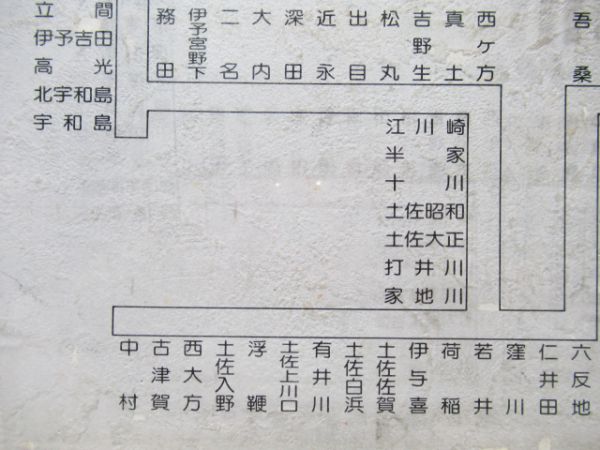 立間
伊予吉田
高光
北宇和島
宇和島
務田
伊予宮野下
二名
大内
深田
近永
出目
松丸
吉野生
真土
西ケ方
江川崎
半家
十川
土佐昭和
土佐大正
打井川
家地川
吾桑
中村
古津賀
西大方
土佐入野
浮鞭
土佐上川口
有井川
土佐白浜
土佐佐賀
伊与喜
荷稲
若井
窪川
仁井田
六反地